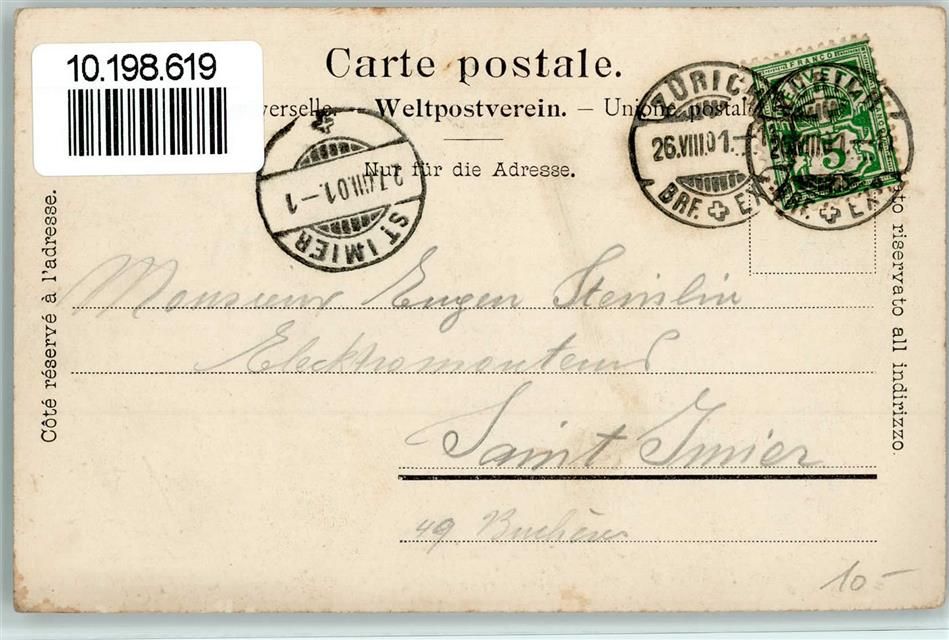 10.198.619
Carte postale.
verselle. — Weltpostverein. — Unione postale
Nur für die Adresse.
Côté réservé à l'adresse.
ZÜRICH
26.VIII.01.
BRF. EXP.
FRANCO
HELVETIA
5
27.VIII.01.–1
ST IMIER
to riservato all indirizzo.
Monsieur Eugen Steinlin
Elecktromonteur
Saint Imier
49
10-